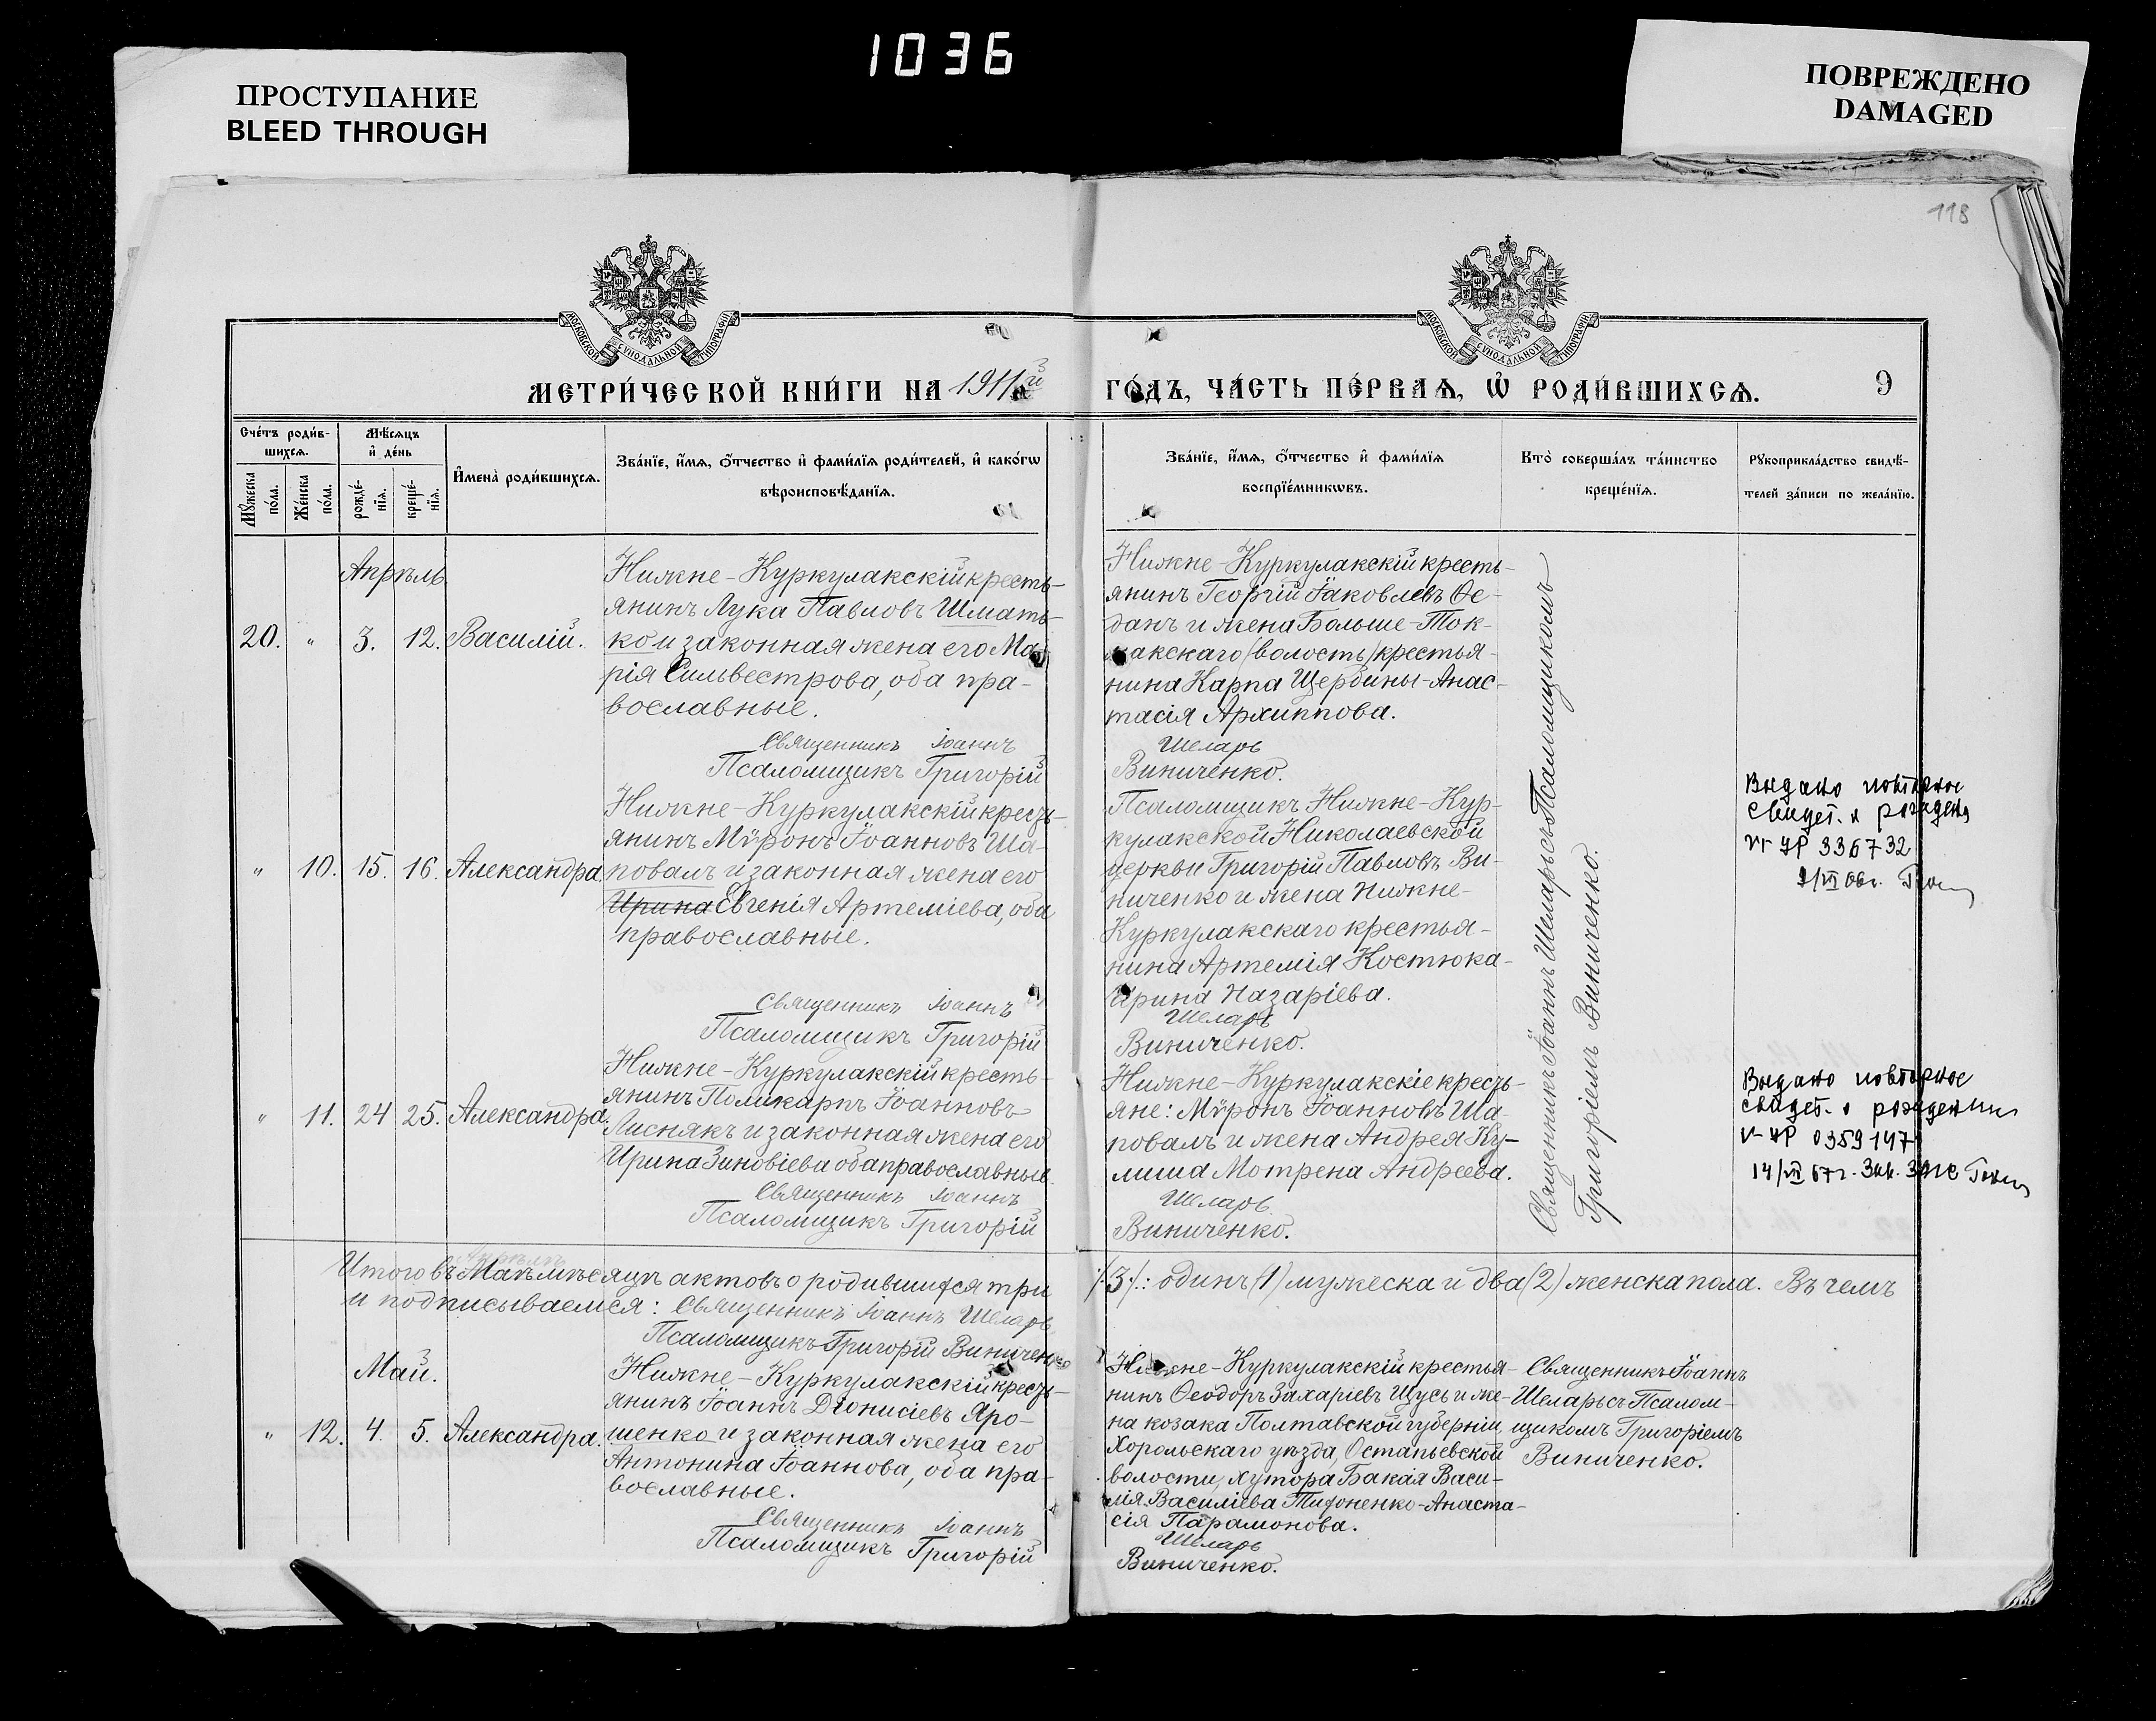 1036
ПРОСТУПАНИЕ
BLEED THROUGH
ПОВРЕЖДЕНО
DAMAGED
118
МОСКОВСКОЙ СѴНОДАЛЬНОЙ ТИПОГРАФІИ
МОСКОВСКОЙ СѴНОДАЛЬНОЙ ТИПОГРАФІИ
МЕТРИ́ЧЕСКОЙ КНИ́ГИ НА 1911й
ГО́ДЪ, ЧА́СТЬ ПЕ́РВАѦ, Ѡ҆ РОДИ́ВШИХСѦ.
9
Сче́тъ роди́в-
шихсѧ.
Мꙋ́жеска
по́ла.
Же́нска
по́ла.
Мѣ́сѧцъ
и҆ де́нь
рожде́-
нїѧ.
креще́-
нїѧ.
И҆мена̀ роди́вшихсѧ.
Зва́нїе, и҆́мѧ, ѻ҆́тчество и҆ фами́лїѧ роди́телей, и҆ како́гѡ
вѣроисповѣ́данїѧ.
Зва́нїе, и҆́мѧ, ѻ҆́тчество и҆ фами́лїѧ
воспрїе́мникѡвъ.
Кто̀ соверша́лъ та́инство
креще́нїѧ.
Рꙋкоприкла́дство свидѣ́-
телей за́писи по жела́нїю.
Апрѣль
20. " 3. 12. Василій.
Нижне-Куркулакскій кресть-
янинъ Лука Павловъ Шмать-
ко и законная жена его Ма-
рія Сильвестрова, оба пра-
вославные.
Священникъ Іоаннъ
Псаломщикъ Григорій
Нижне-Куркулакскій кресть-
янинъ Георгій Іаковлевъ Ѳе-
данъ и жена Больше-Ток-
макскаго (волость) крестья-
нина Карпа Щербины-Анас-
тасія Архиппова.
Шеларь
Виниченко.
" 10. 15. 16. Александра.
Нижне-Куркулакскій кресть-
янинъ Мѵронъ Іоанновъ Ша-
повалъ и законная жена его
Ирина Евгенія Артеміева, оба
православные.
Священникъ Іоаннъ
Псаломщикъ Григорій
Псаломщикъ Нижне-Кур-
кулакской Николаевской
церкви Григорій Павловъ Ви-
ниченко и жена Нижне-
Куркулакскаго крестья-
нина Артемія Костюка-
Ирина Назаріева.
Шеларь
Виниченко.
Выдано повторное
свидет. о рождени
336732
" 11. 24 25. Александра.
Нижне-Куркулакскій кресть-
янинъ Поликарпъ Іоанновъ
Лиснякъ и законная жена его
Ирина Зиновіева оба православные.
Священникъ Іоаннъ
Псаломщикъ Григорій
Нижне-Куркулакскіе кресть-
яне: Мѵронъ Іоанновъ Ша-
повалъ и жена Андрея Ку-
лиша Мотрена Андреева.
Шеларь
Виниченко.
Священникъ Іоаннъ Шеларь съ Псаломщикомъ
Григоріемъ Виниченко.
Выдано повторное
свидет. о рождении
Итого въ Маѣ Апрѣлѣ мѣсяцѣ актовъ о родившихся три
/:3:/: одинъ (1) мужеска и два (2) женска пола. Въ чемъ
и подписываемся: Священникъ Іоаннъ Шеларь.
Псаломщикъ Григорій Виниченко
Май.
" 12. 4. 5. Александра.
Нижне-Куркулакскій кресть-
янинъ Іоаннъ Діонисіевъ Яро-
шенко и законная жена его
Антонина Іоаннова, оба пра-
вославные.
Священникъ Іоаннъ
Псаломщикъ Григорій
Нижне-Куркулакскій крестья-
нинъ Ѳеодоръ Захаріевъ Щусь и же-
на козака Полтавской губерніи,
Хорольскаго уѣзда, Остапьевской
волости, хутора Бакая Васи-
лія Василіева Тихоненко-Анаста-
сія Парамонова.
Шеларь
Виниченко.
Священникъ Іоаннъ
Шеларь съ Псалом-
щикомъ Григоріемъ
Виниченко.